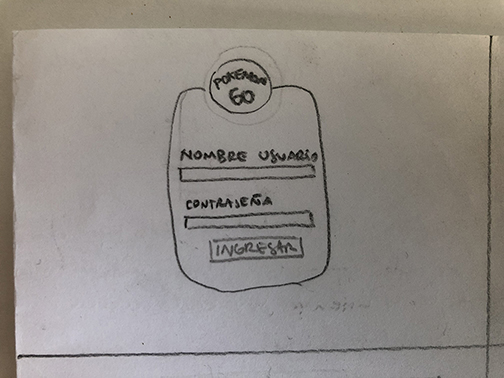 POKEMON
GO
NOMBRE USUARIO
CONTRASEÑA
INGRESAR